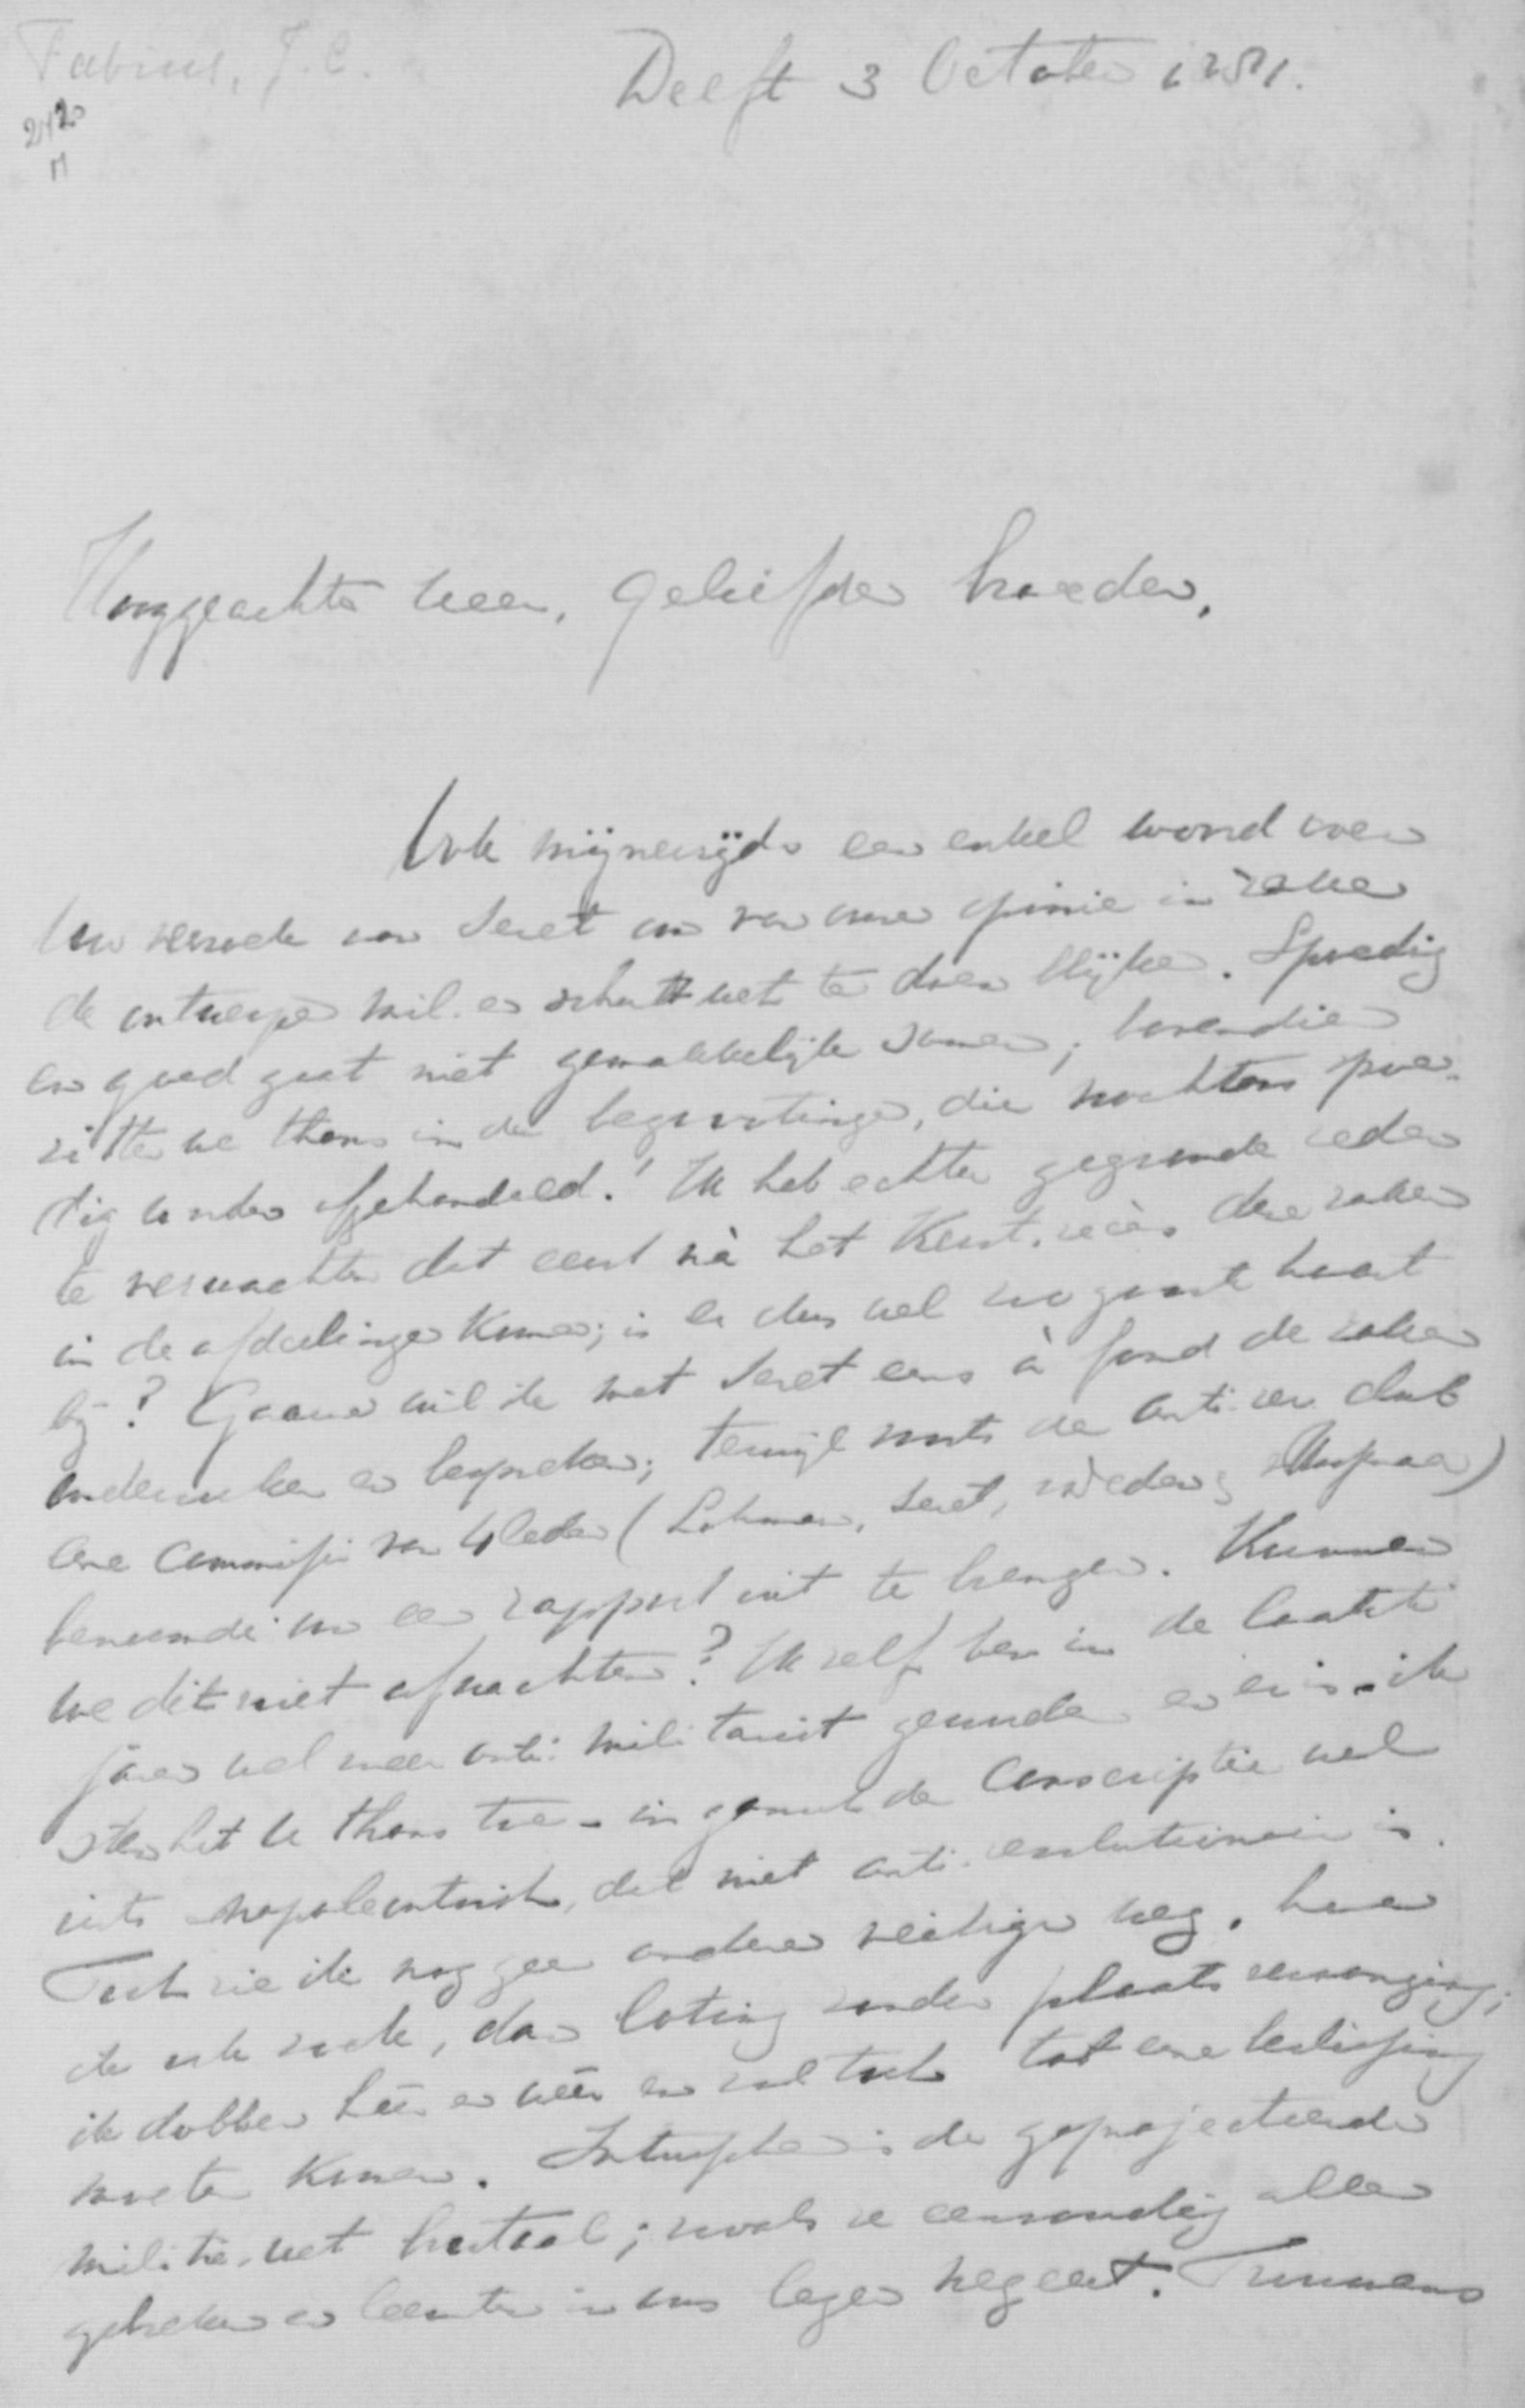 Fabius, J. C.
Delft 3 October 1881.
Hooggeachte heer, geliefde broeder,
Ook mijnerzijds een enkel woord over
Uw verzoek aan Seret om van onze opinie in zake
de ontwerpen mil. en schutt wet te doen blijken. Spoedig
en goed gaat niet gemakkelijk samen; bovendien
zitten we thans in de begrootingen, die nochtans spoe-
dig worden afgehandeld. Ik heb echter gegronde reden
te verwachten dat eerst nà het Kerst. recès deze zaken
in de afdeelingen komen; is er dus wel zoo groote haast
bij? Gaarne wil ik met Seret eens à fond de zaken
onderzoeken en bespreken; terwijl onts de anti-rev. club
eene commissie van 4 leden (Lohman, Seret,
benoemde om een rapport uit te brengen. Kunnen
we dit niet afwachten? Ik zelf ben in de laatste
jaren wel meer anti-militarist geworden en er is - ik
stem het U thans toe - in zooverre de conscriptie wel
iets napoleontisch, dat niet anti-revolutionair is.
Toch zie ik nog geen andere veilige weg, hoe
ik ook zoek, dan loting zonder plaatsvervanging;
ik dobber hêen en wêer en zal toch tot eene beslissing
moeten komen. Intusschen is de geprojecteerde
militie-wet brutaal; zooals ze eenvoudig alle
gebreken en leemten in ons leger negeert. Trouwens